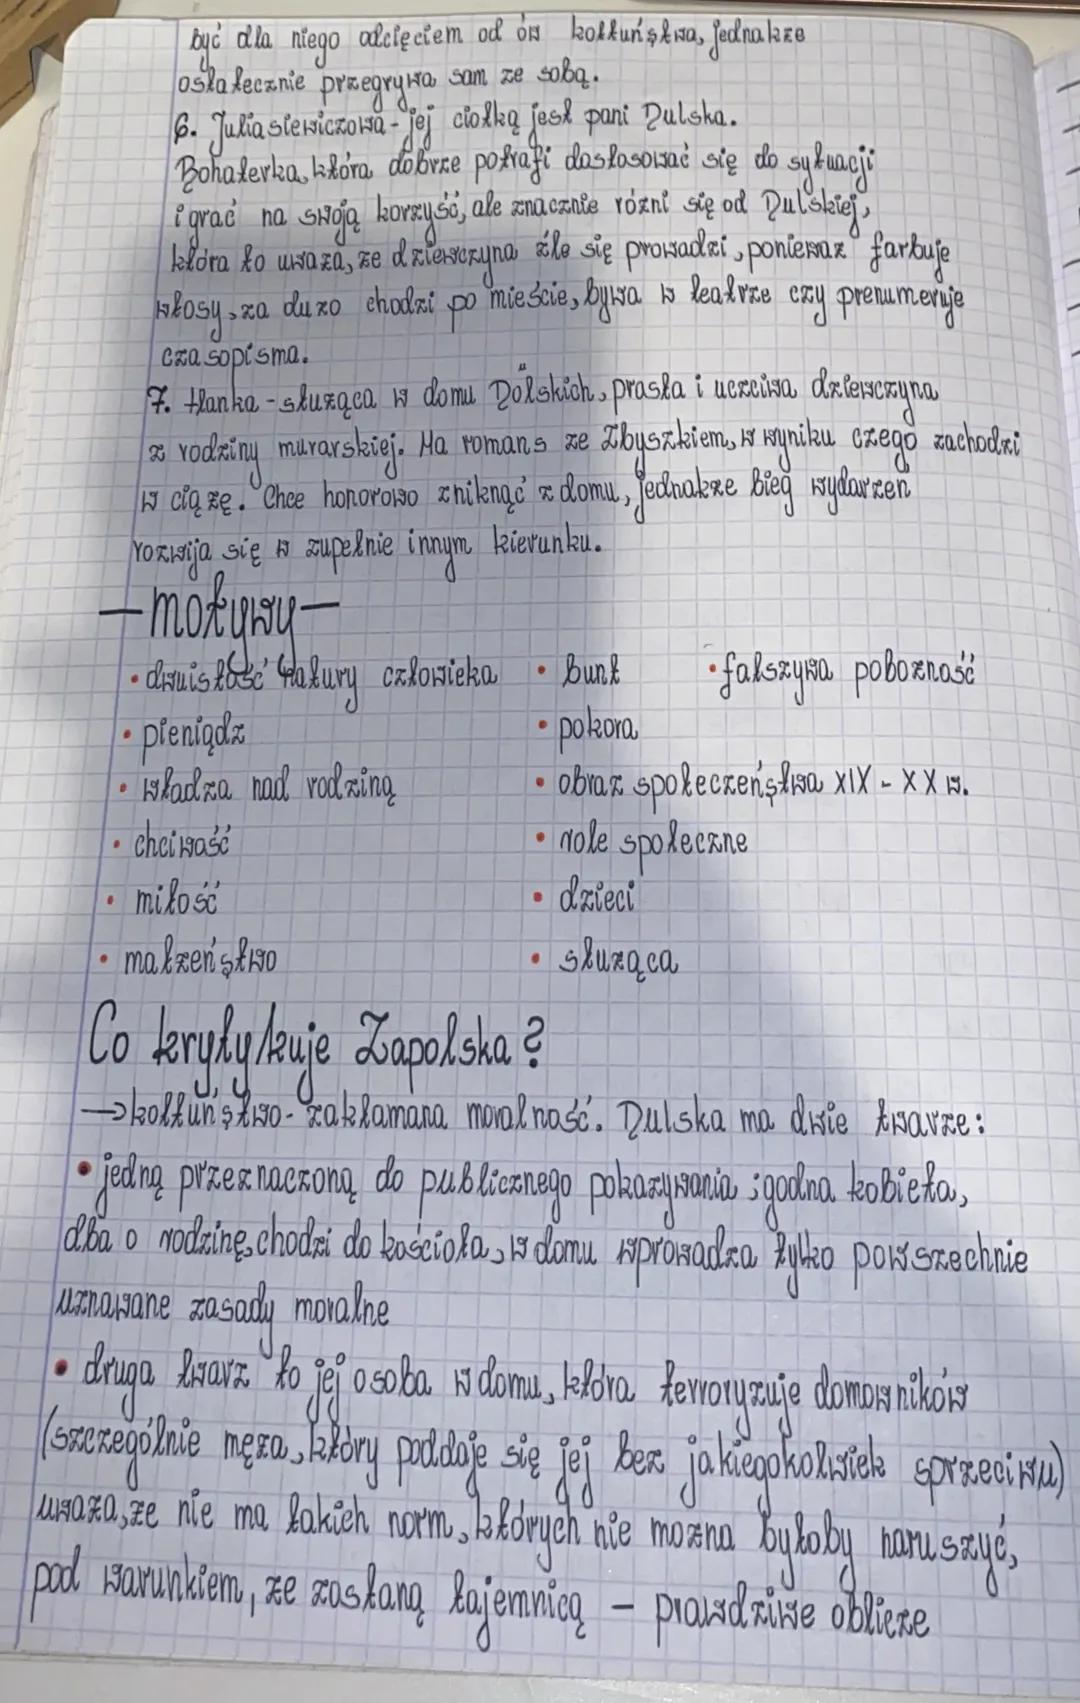 być dla niego odcięciem od ów kołtuństwa, jednakże
ostatecznie przegrywa sam ze sobą.
6. Juliasiewiczowa - jej ciotką jest pani Dulska.
Bohaterka, która dobrze potrafi dostosować się do sytuacji
i grać na swoją korzyść, ale znacznie różni się od Dulskiej,
która to uważa, że dziewczyna źle się prowadzi, ponieważ farbuje
włosy, za dużo chodzi po mieście, bywa w teatrze czy prenumeruje
czasopisma.
7. Hanka - służąca w domu Dulskich, prosta i uczciwa dziewczyna
z rodziny murarskiej. Ma romans ze Zbyszkiem, w wyniku czego zachodzi
w ciążę. Chce honorowo zniknąć z domu, jednakże bieg wydarzeń
rozwija się w zupełnie innym kierunku.
- motywy -
• dwuistość natury człowieka • bunt • fałszywa pobożność
• pieniądz • pokora
• władza nad rodziną • obraz społeczeństwa XIX - XX w.
• chciwość • role społeczne
• miłość • dzieci
• małżeństwo • służąca
Co krytykuje Zapolska?
→ kołtuństwo - zakłamana moralność. Dulska ma dwie twarze:
• jedną przeznaczoną do publicznego pokazywania ; godna kobieta,
dba o rodzinę, chodzi do kościoła, w domu wprowadza tylko powszechnie
uznawane zasady moralne
• druga twarz to jej osoba w domu, która terroryzuje domowników
(szczególnie męża, który poddaje się jej bez jakiegokolwiek sprzeciwu)
uważa, że nie ma takich norm, których nie można byłoby naruszyć,
pod warunkiem, że zostaną tajemnicą – prawdziwe oblicze